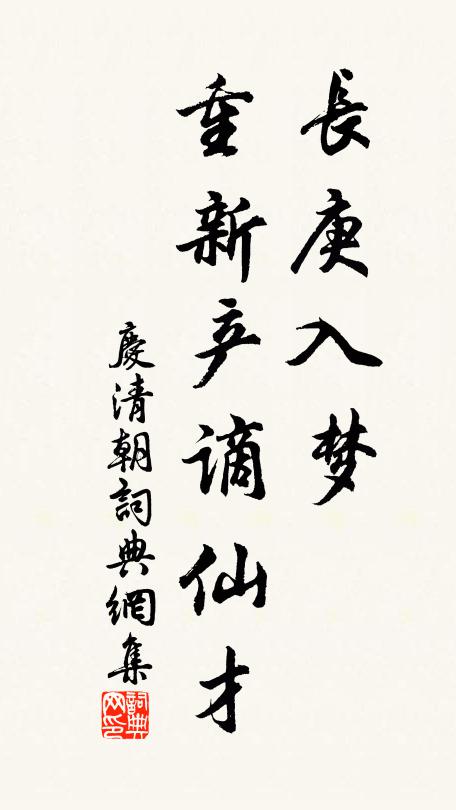 長庚入梦
重新产谪仙才
慶清朝詞典網集
詞典网印